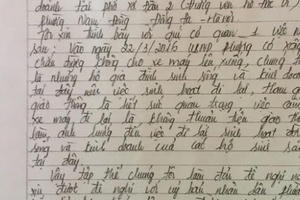 doanh tại phố xã Đàn 2 (
phường Nam Đồng - Đống Đa - Hà Nội
Tôi xin trình bày với quí cơ quan 1 việc như
sau: Vào ngày 22/3/2016 UBND phường có xây
chân dựng chống cho xe máy lên xuống, chúng tôi
là những hộ gia đình sinh sống và kinh doanh
tại đây nên việc sinh hoạt đi lại, tham gia
giao thông là hết sức quan trọng việc cấm
xe máy đi lại là không thuận tiện giao thông
làm ảnh hưởng đến việc đi lại sinh hoạt
sống và kinh doanh của các hộ sinh sống
tại đây
Vậy tập thể chúng tôi làm đơn đề nghị
xin được đề nghị với uỷ ban nhân dân phường